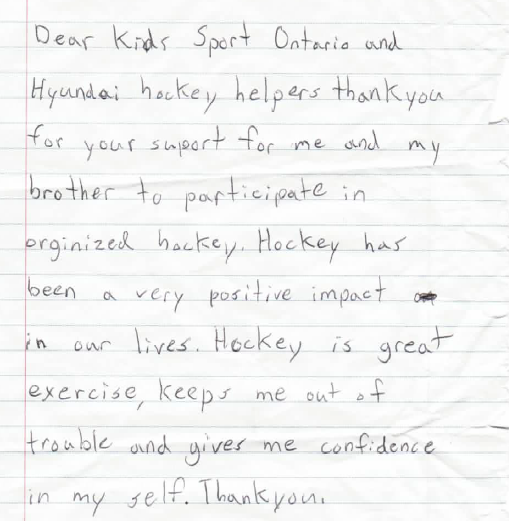 Dear Kids Sport Ontario and
Hyundai hockey helpers thankyou
for your suport for me and my
brother to participate in
orginized hockey. Hockey has
been a very positive impact
in our lives. Hockey is great
exercise, keeps me out of
trouble and gives me confidence
in my self. Thankyou.